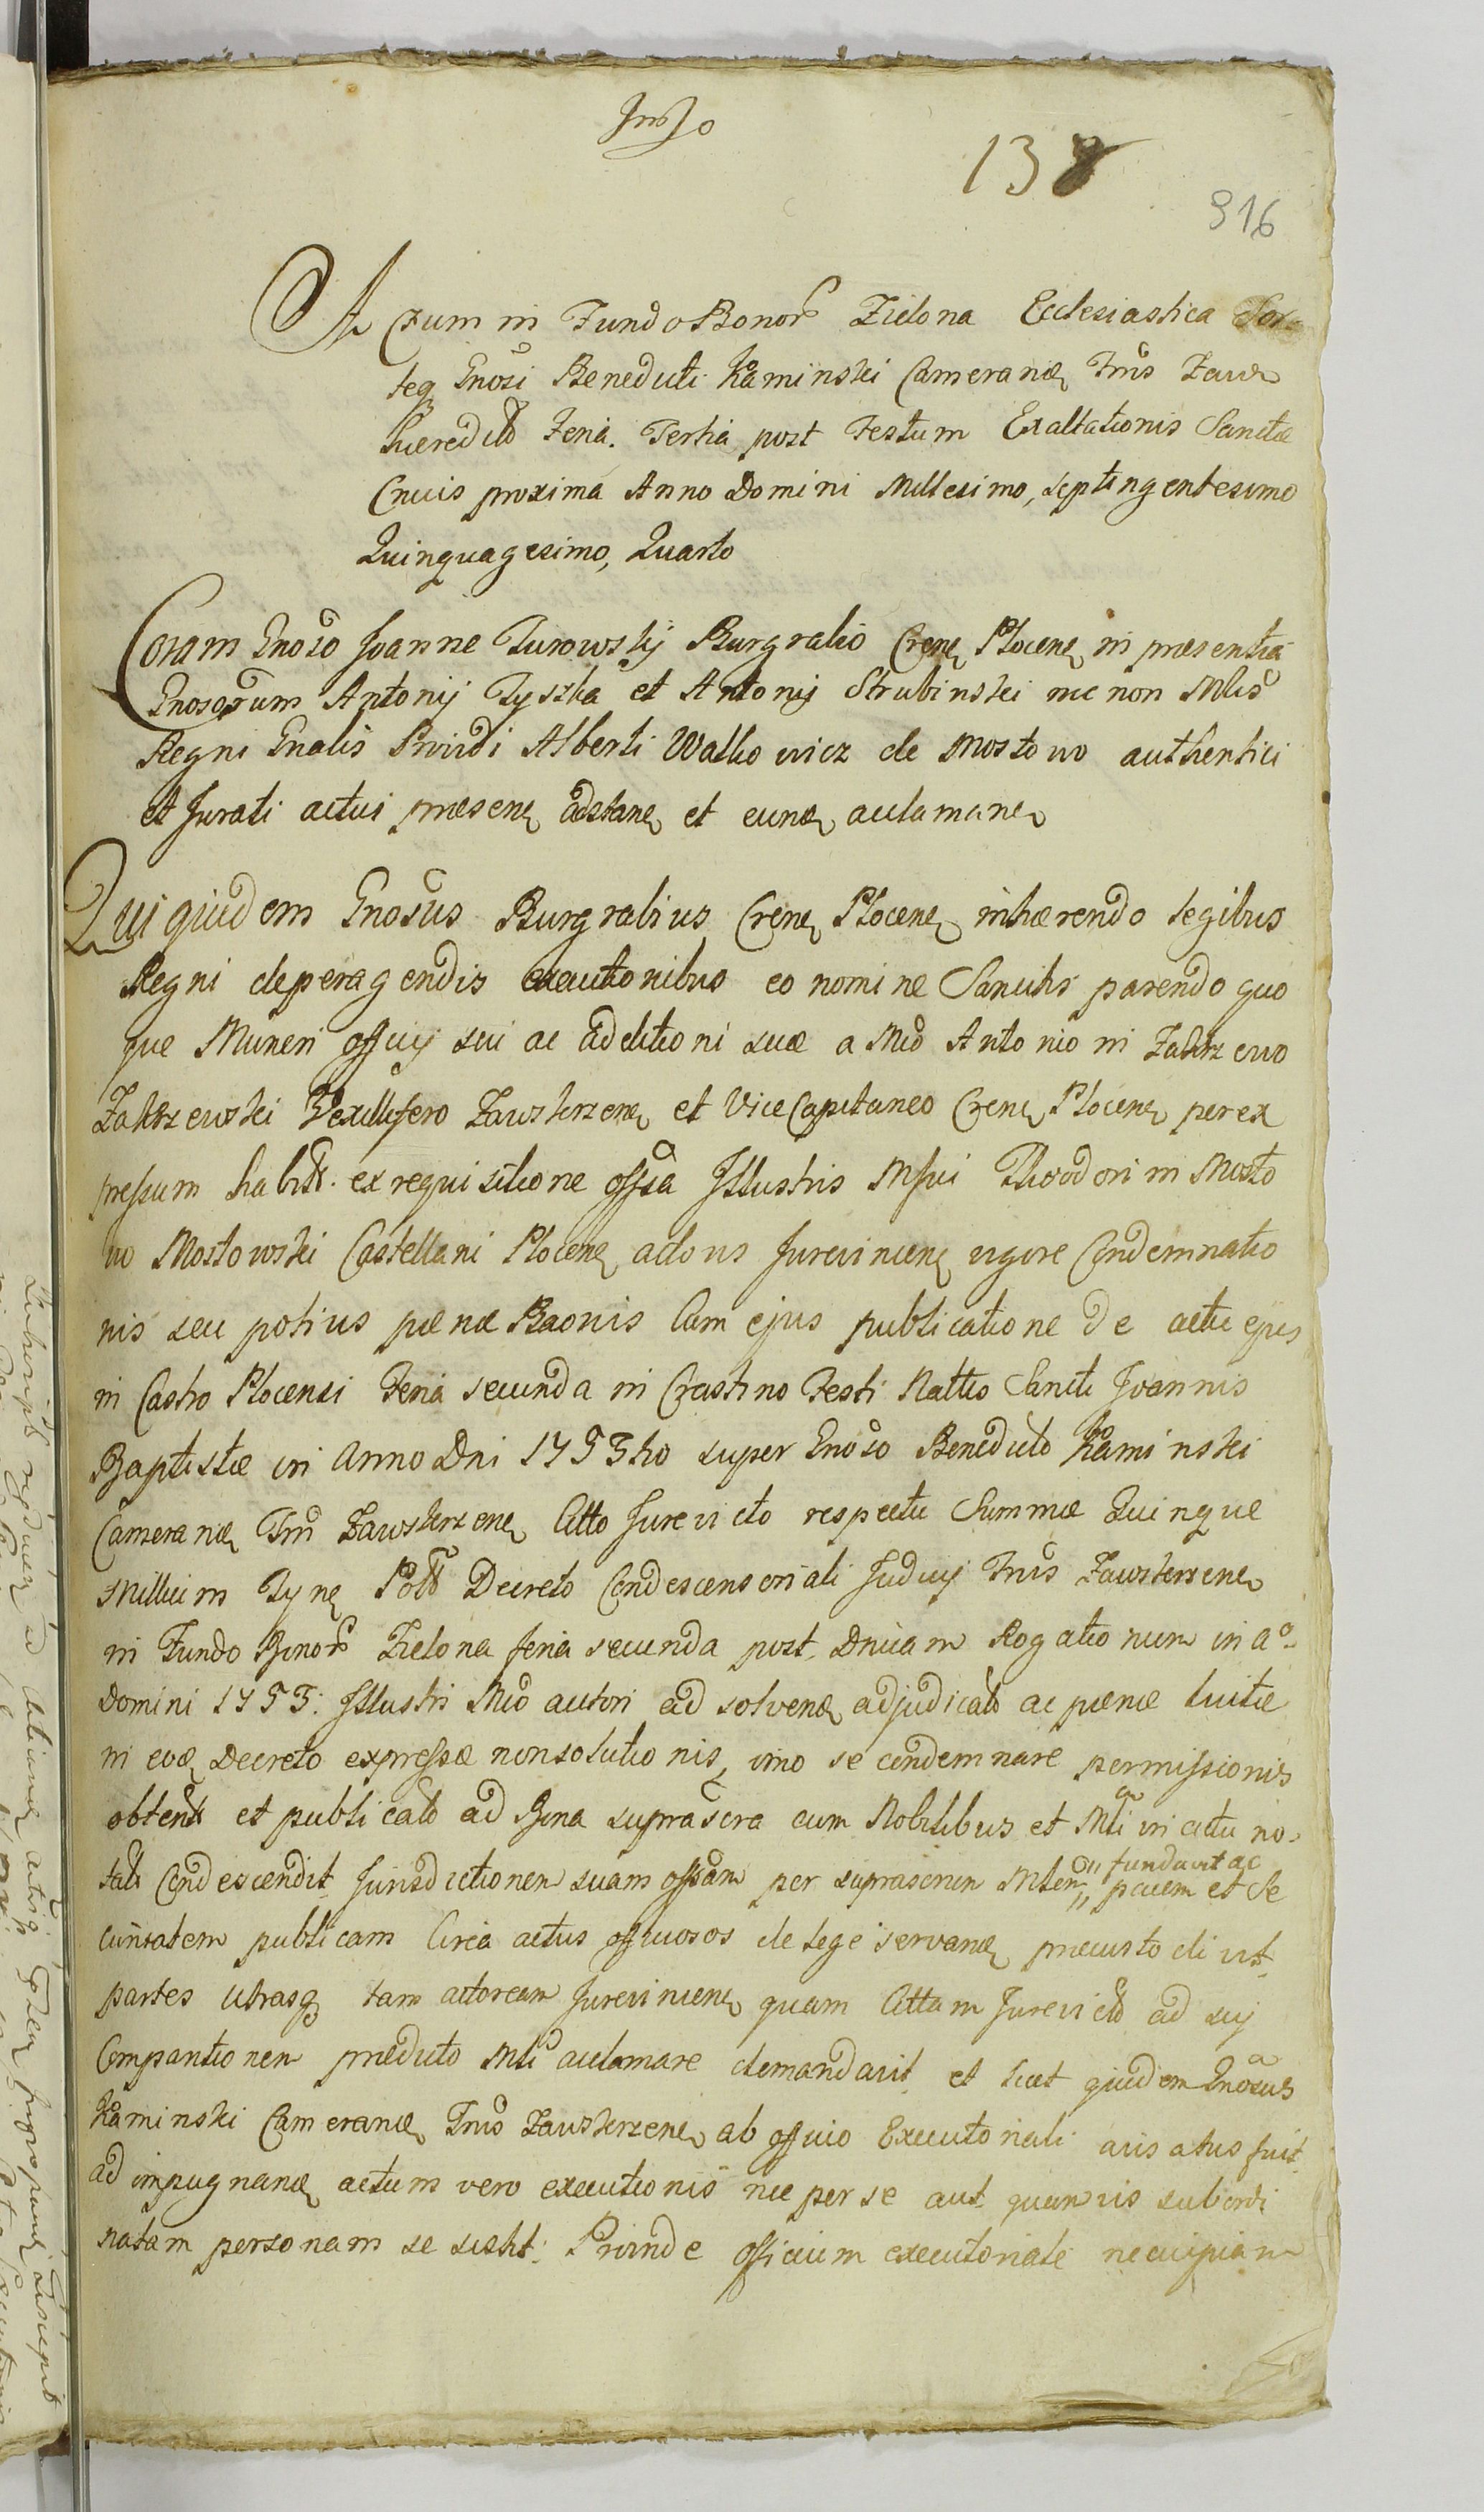 138
916
Actum in Fundo Bonor Zielona Ecclesiastica
Gnosi Benedicti Kaminski Cameranœ Trrŭs Zawœ
hœredito Feria. Tertia post Festum Exaltationis Sanctœ
Crucis proxima Anno Domini Millesimo, septingentesimo
Quinquagesimo, Quarto
Coram Gnoso Joanne Turowskÿ Burgrabio Crenœ Plocenœ in præsentia
Gnosorum Antonij Tyszka et Antonij Strubinski nec non Mlis
Regni Gnalis Providi Alberti Walkowicz de Mostowo authentici
et Jurati actui præsenœ adstanœ et eunœ aclamanœ
Qui quidem Gnosus Burgrabius Crenœ Plocenœ inhærendo legibus
Regni de peragendis executionibus eo nomine Sancitis parendo quo
que Muneri officij sui ac additioni suæ a Mco Antonio in Zakrzewo
Zakrzewski Vexillifero Zawskrzenœ et ViceCapitaneo Crenœ Plocenœ per ex
pressum habitœ. ex requisitione offsa Illustris Msci Theodori in Mosto
wo Mostowski Castellani Plocenœ actoris Jurevincenœ vigore Condemnatio
nis seu potius pœnæ Baonis Cum ejus publicatione de actu ejus
in Castro Plocensi Feria secunda in Crastino Festi Nattis Sancti Joannis
Baptistæ in Anno Dni 1753tio super Gnoso Benedicto Kaminski
Cameranœ Trrĭ Zawskrzenœ Citto Jurevicto respectu Summæ Quinque
Millium Tynœ Polt Decreto Condescensoriali Judicij Trris Zawskrzenœ
in Fundo Bonor Zielona feria secunda post Dnicam Rogationum in ao
Domini 1753: Illustri Mco actori ad solvenœ adjudicato ac pœnæ luitæ
in eoœ Decreto expressæ non solutionis, imo se condemnare permissionis
obtentœ et publicato ad Bona suprascra cum Nobilibus et Mli in actu no-
tats Condescendit Jurisdictionem suam offsam per suprascrum Mlem fundavit ac
pacem et Se
curitatem publicam Circa actus officiosos de lege servanœ præcustodivit
partes utrasq tam actoream Jurevincenœ quam Cittam Jurevicto ad sui
Comparitionem prædicto Mli aclamare demandavit et licet quidem Gnosus
Kaminski Cameranœ Trris Zawskrzenœ ab officio Executoriali avisatus fuit
ad impugnanœ actum vero executionis nec per se aut quamvis subordi
natam personam se sistit. Proinde officium executoriale necuipiam